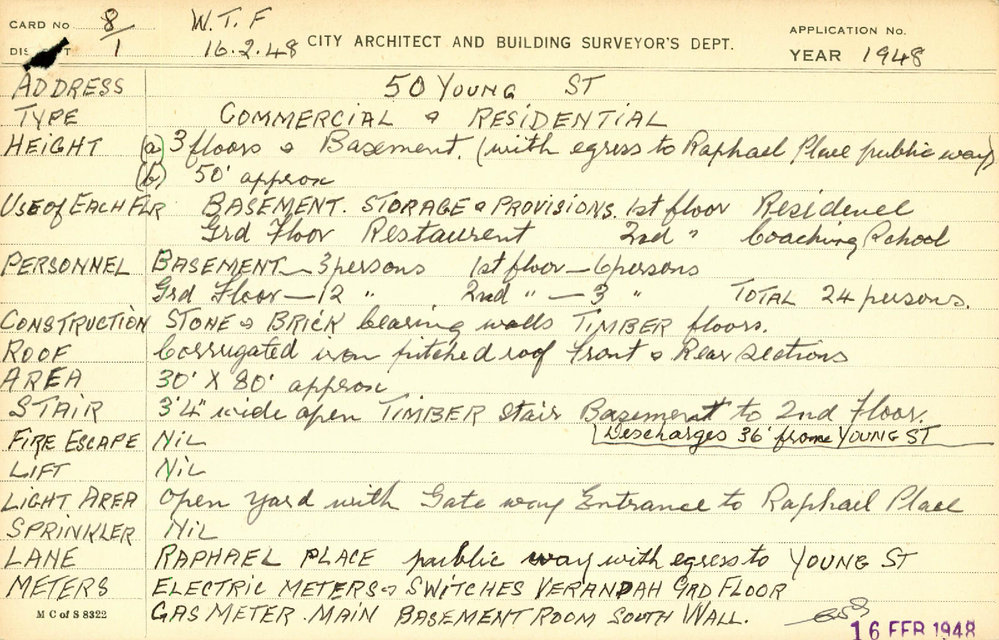 CARD No. 8/1 W.T.F APPLICATION No.
16.2.48 CITY ARCHITECT AND BUILDING SURVEYOR'S DEPT. YEAR 1948
ADDRESS 50 YOUNG ST
TYPE COMMERCIAL & RESIDENTIAL
HEIGHT (a) 3 floors & Basement. (with egress to Raphael Place public way)
(b) 50' approx
USE of EACH FLR BASEMENT. STORAGE & PROVISIONS. 1st floor Residence
Grd Floor Restaurent 2nd " Coaching School
PERSONNEL BASEMENT — 3 persons 1st floor — 6 persons
Grd Floor — 12 " 2nd " — 3 " TOTAL 24 persons.
CONSTRUCTION STONE & BRICK bearing walls TIMBER floors.
ROOF Corrugated iron pitched roof Front & Rear Sections
AREA 30' X 80' approx
STAIR 3'4" wide open TIMBER Stair Basement to 2nd Floor.
FIRE ESCAPE NiL Discharges 36' from YOUNG ST
LIFT NiL
LIGHT AREA Open yard with Gate way Entrance to Raphael Place
SPRINKLER NiL
LANE RAPHAEL PLACE public way with egress to YOUNG ST
METERS ELECTRIC METERS & SWITCHES VERANDAH GRD FLOOR
M C of S 8322 GAS METER. MAIN BASEMENT ROOM SOUTH WALL.
16 FEB 1948